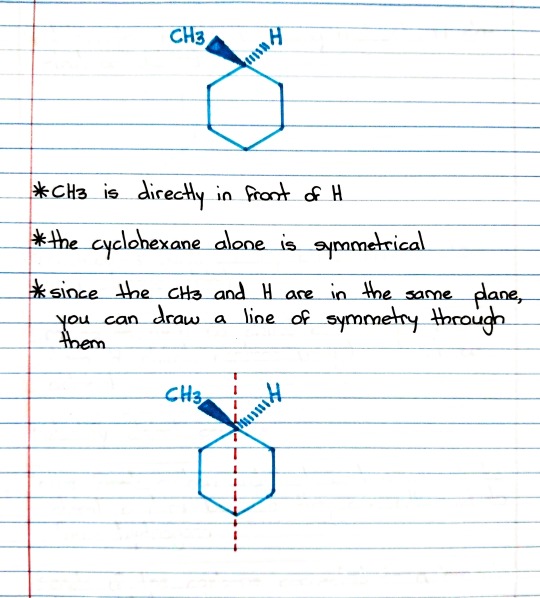 CH3 H
*CH3 is directly in front of H
*the cyclohexane alone is symmetrical
*since the CH3 and H are in the same plane,
you can draw a line of symmetry through
them
CH3 H